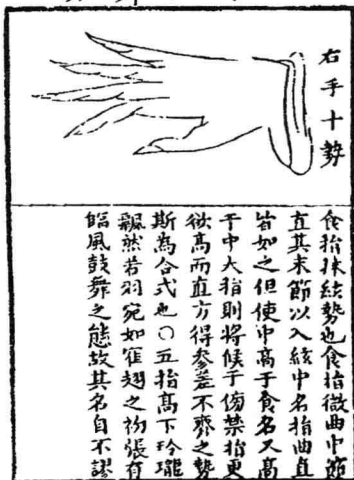 右手十勢
食指抹絃勢也食指微曲中節
直其末節以入絃中名指曲直
皆如之但使中高于食名又高
于中大指則將候于傍禁指更
欲高而直方得參差不齊之勢
斯為合式也〇五指高下玲瓏
飄然若羽宛如寉翅之初張有
臨風鼓舞之態故其名自不謬